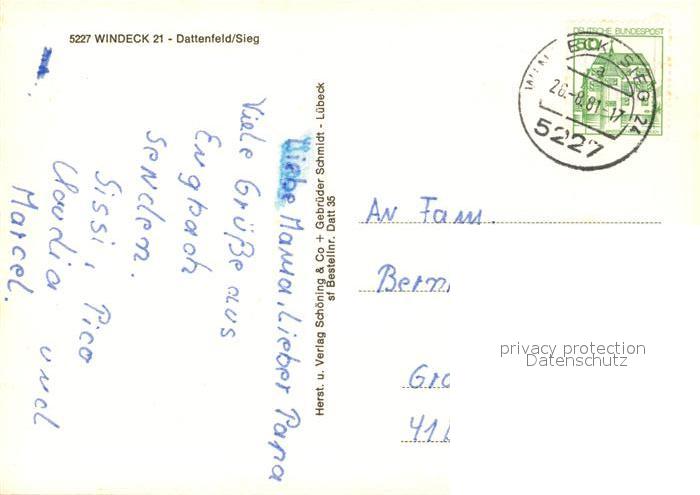 5227 WINDECK 21 - Dattenfeld/Sieg
Liebe Mama, Lieber Papa
Viele Grüße aus
Engbach
senden.
Sissi, Pico
Claudia und
Marcel.
Herst. u. Verlag Schöning & Co + Gebrüder Schmidt - Lübeck
sf Bestellnr. Datt 35
DEUTSCHE BUNDESPOST
50
WINDECK, SIEG 21
a
26.-8.81-17
5227
An Fam.
Bern
Gr
41
privacy protection
Datenschutz